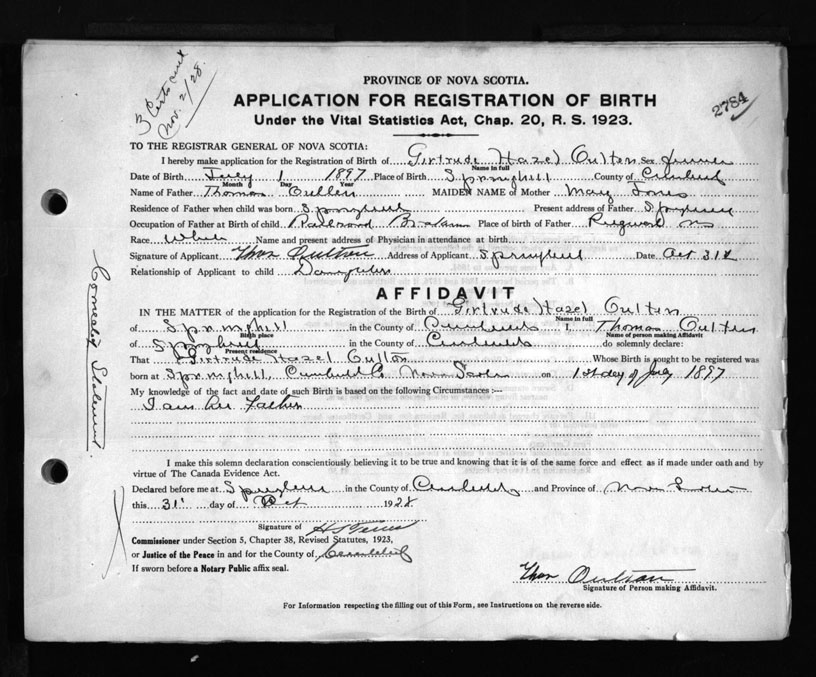 3 Certs
Nov. 2/28.
2784
PROVINCE OF NOVA SCOTIA.
APPLICATION FOR REGISTRATION OF BIRTH
Under the Vital Statistics Act, Chap. 20, R. S. 1923.
TO THE REGISTRAR GENERAL OF NOVA SCOTIA:
I hereby make application for the Registration of Birth of Girtrude Hazel Oulton Sex
Name in full
Date of Birth July 1 1897 Place of Birth Springhill County of Cumberland
Month Day Year
Name of Father Thomas Oulton MAIDEN NAME of Mother Mary Jones
Residence of Father when child was born Springhill Present address of Father Springhill
Occupation of Father at Birth of child Railroad Brakeman Place of birth of Father
Race White Name and present address of Physician in attendance at birth
Signature of Applicant Thos Oultan Address of Applicant Springhill Date Oct 31st
Relationship of Applicant to child
AFFIDAVIT
IN THE MATTER of the application for the Registration of the Birth of Girtrude Hazel Oulten
Name in full
of Springhill in the County of Cumberland I, Thomas Oulten
Birth place Name of person making Affidavit
of Springhill in the County of Cumberland do solemnly declare:
Present residence
That Girtrude Hazel Oulton Whose Birth is sought to be registered was
born at Springhill, Cumberland Co. Nova Scotia on 1st day of July 1897
My knowledge of the fact and date of such Birth is based on the following Circumstances :—
I am her Father
I make this solemn declaration conscientiously believing it to be true and knowing that it is of the same force and effect as if made under oath and by
virtue of The Canada Evidence Act.
Declared before me at Springhill in the County of Cumberland and Province of Nova Scotia
this 31st day of Oct 1928
Signature of
Commissioner under Section 5, Chapter 38, Revised Statutes, 1923,
or Justice of the Peace in and for the County of Cumberland
If sworn before a Notary Public affix seal.
Thos Oultan
Signature of Person making Affidavit.
For Information respecting the filling out of this Form, see Instructions on the reverse side.
Statement